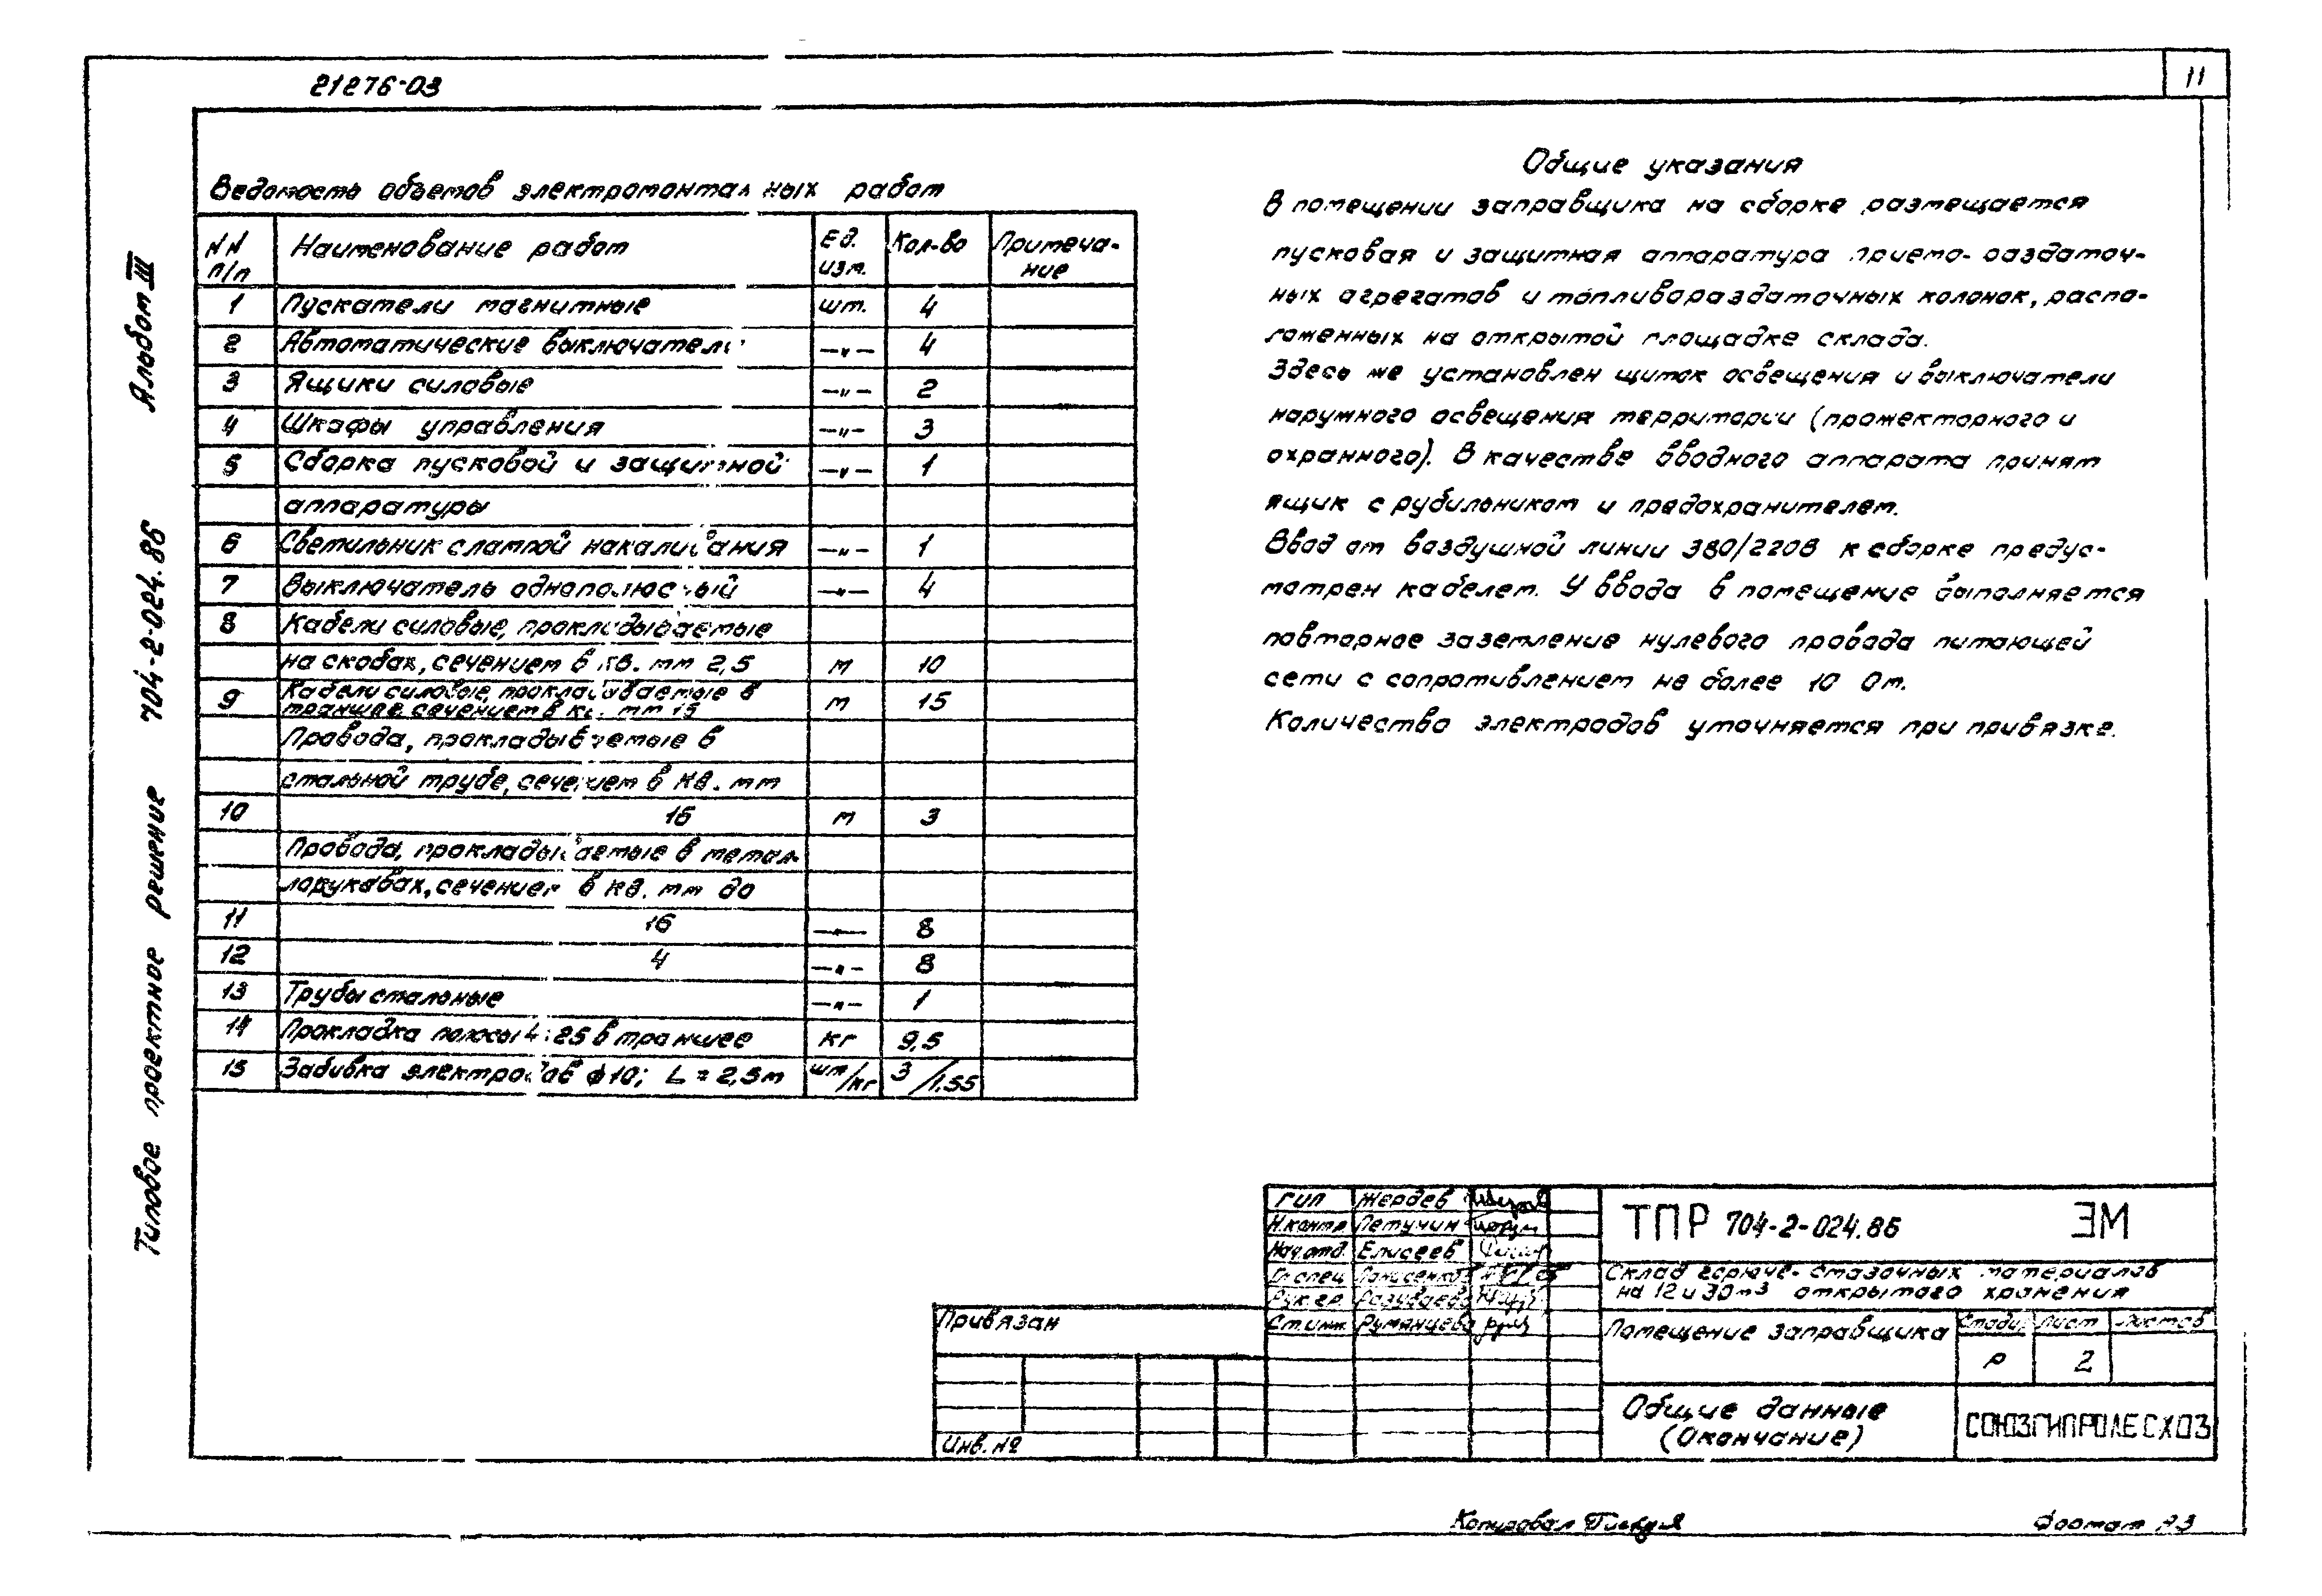 21276-03
11
Альбом III
704-2-024.86
Типовое проектное решение
Ведомость объемов электромонтажных работ
NN п/п Наименование работ Ед. изм. Кол-во Примечание
1 Пускатели магнитные шт. 4
2 Автоматические выключатели —"— 4
3 Ящики силовые —"— 2
4 Шкафы управления —"— 3
5 Сборка пусковой и защитной —"— 1
аппаратуры
6 Светильник с лампой накаливания —"— 1
7 Выключатель однополюсный —"— 4
8 Кабели силовые, прокладываемые
на скобах, сечением в кв. мм 2,5 м 10
9 Кабели силовые, прокладываемые в
траншее сечением в кв. мм 16 м 15
Провода, прокладываемые в
стальной трубе, сечением в кв. мм
10 16 м 3
Провода, прокладываемые в метал-
лорукавах, сечением в кв. мм до
11 16 —"— 8
12 4 —"— 8
13 Трубы стальные —"— 1
14 Прокладка полосы 4×25 в траншее кг 9,5
15 Забивка электродов ф10; L = 2,5м шт/кг 3/1.55
Общие указания
В помещении заправщика на сборке размещается
пусковая и защитная аппаратура приемо-раздаточ-
ных агрегатов и топливораздаточных колонок, распо-
ложенных на открытой площадке склада.
Здесь же установлен щиток освещения и выключатели
наружного освещения территории (прожекторного и
охранного). В качестве вводного аппарата принят
ящик с рубильником и предохранителем.
Ввод от воздушной линии 380/220В к сборке предус-
мотрен кабелем. У ввода в помещение выполняется
повторное заземление нулевого провода питающей
сети с сопротивлением не более 10 Ом.
Количество электродов уточняется при привязке.
ГИП Жердев
Н.контр Петучин
Нач.отд. Елисеев
Гл.спец
Рук.гр. Разуваева
Ст.инж. Румянцева
ТПР 704-2-024.86 ЭМ
Склад горюче-смазочных материалов
на 12 и 30 м³ открытого хранения
Помещение заправщика
Стадия Лист Листов
Р 2
Общие данные
(Окончание)
СОЮЗГИПРОЛЕСХОЗ
Привязан
Инв. №
Копировал
Формат А3